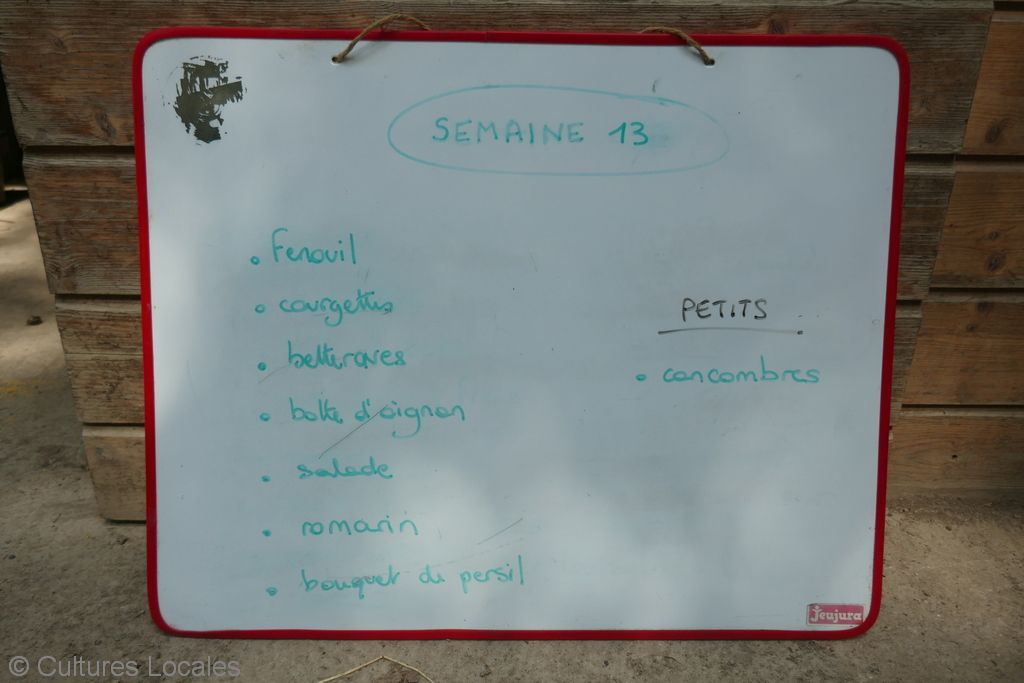 SEMAINE 13
• Fenouil
• courgettes
• betteraves
• botte d'oignon
• salade
• romarin
• bouquet du persil
PETITS
• concombres
Jeujura
© Cultures Locales